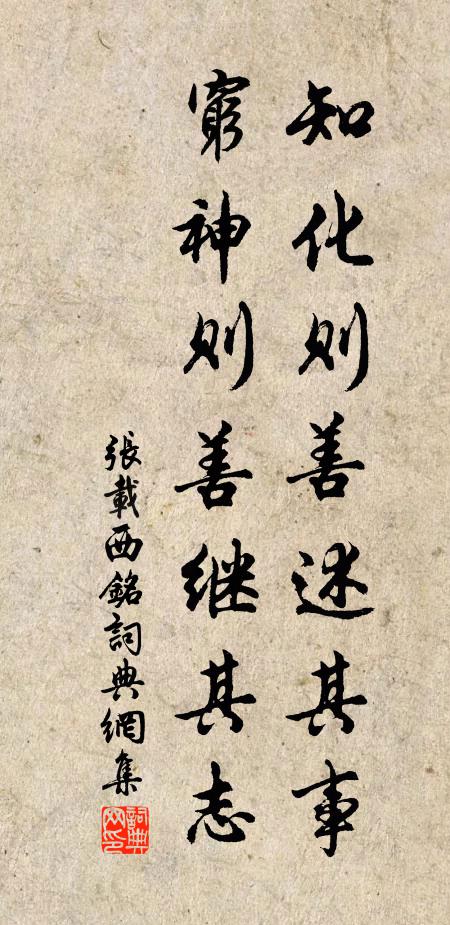 知化则善述其事
窮神则善继其志
張載西銘詞典網集
詞典网印